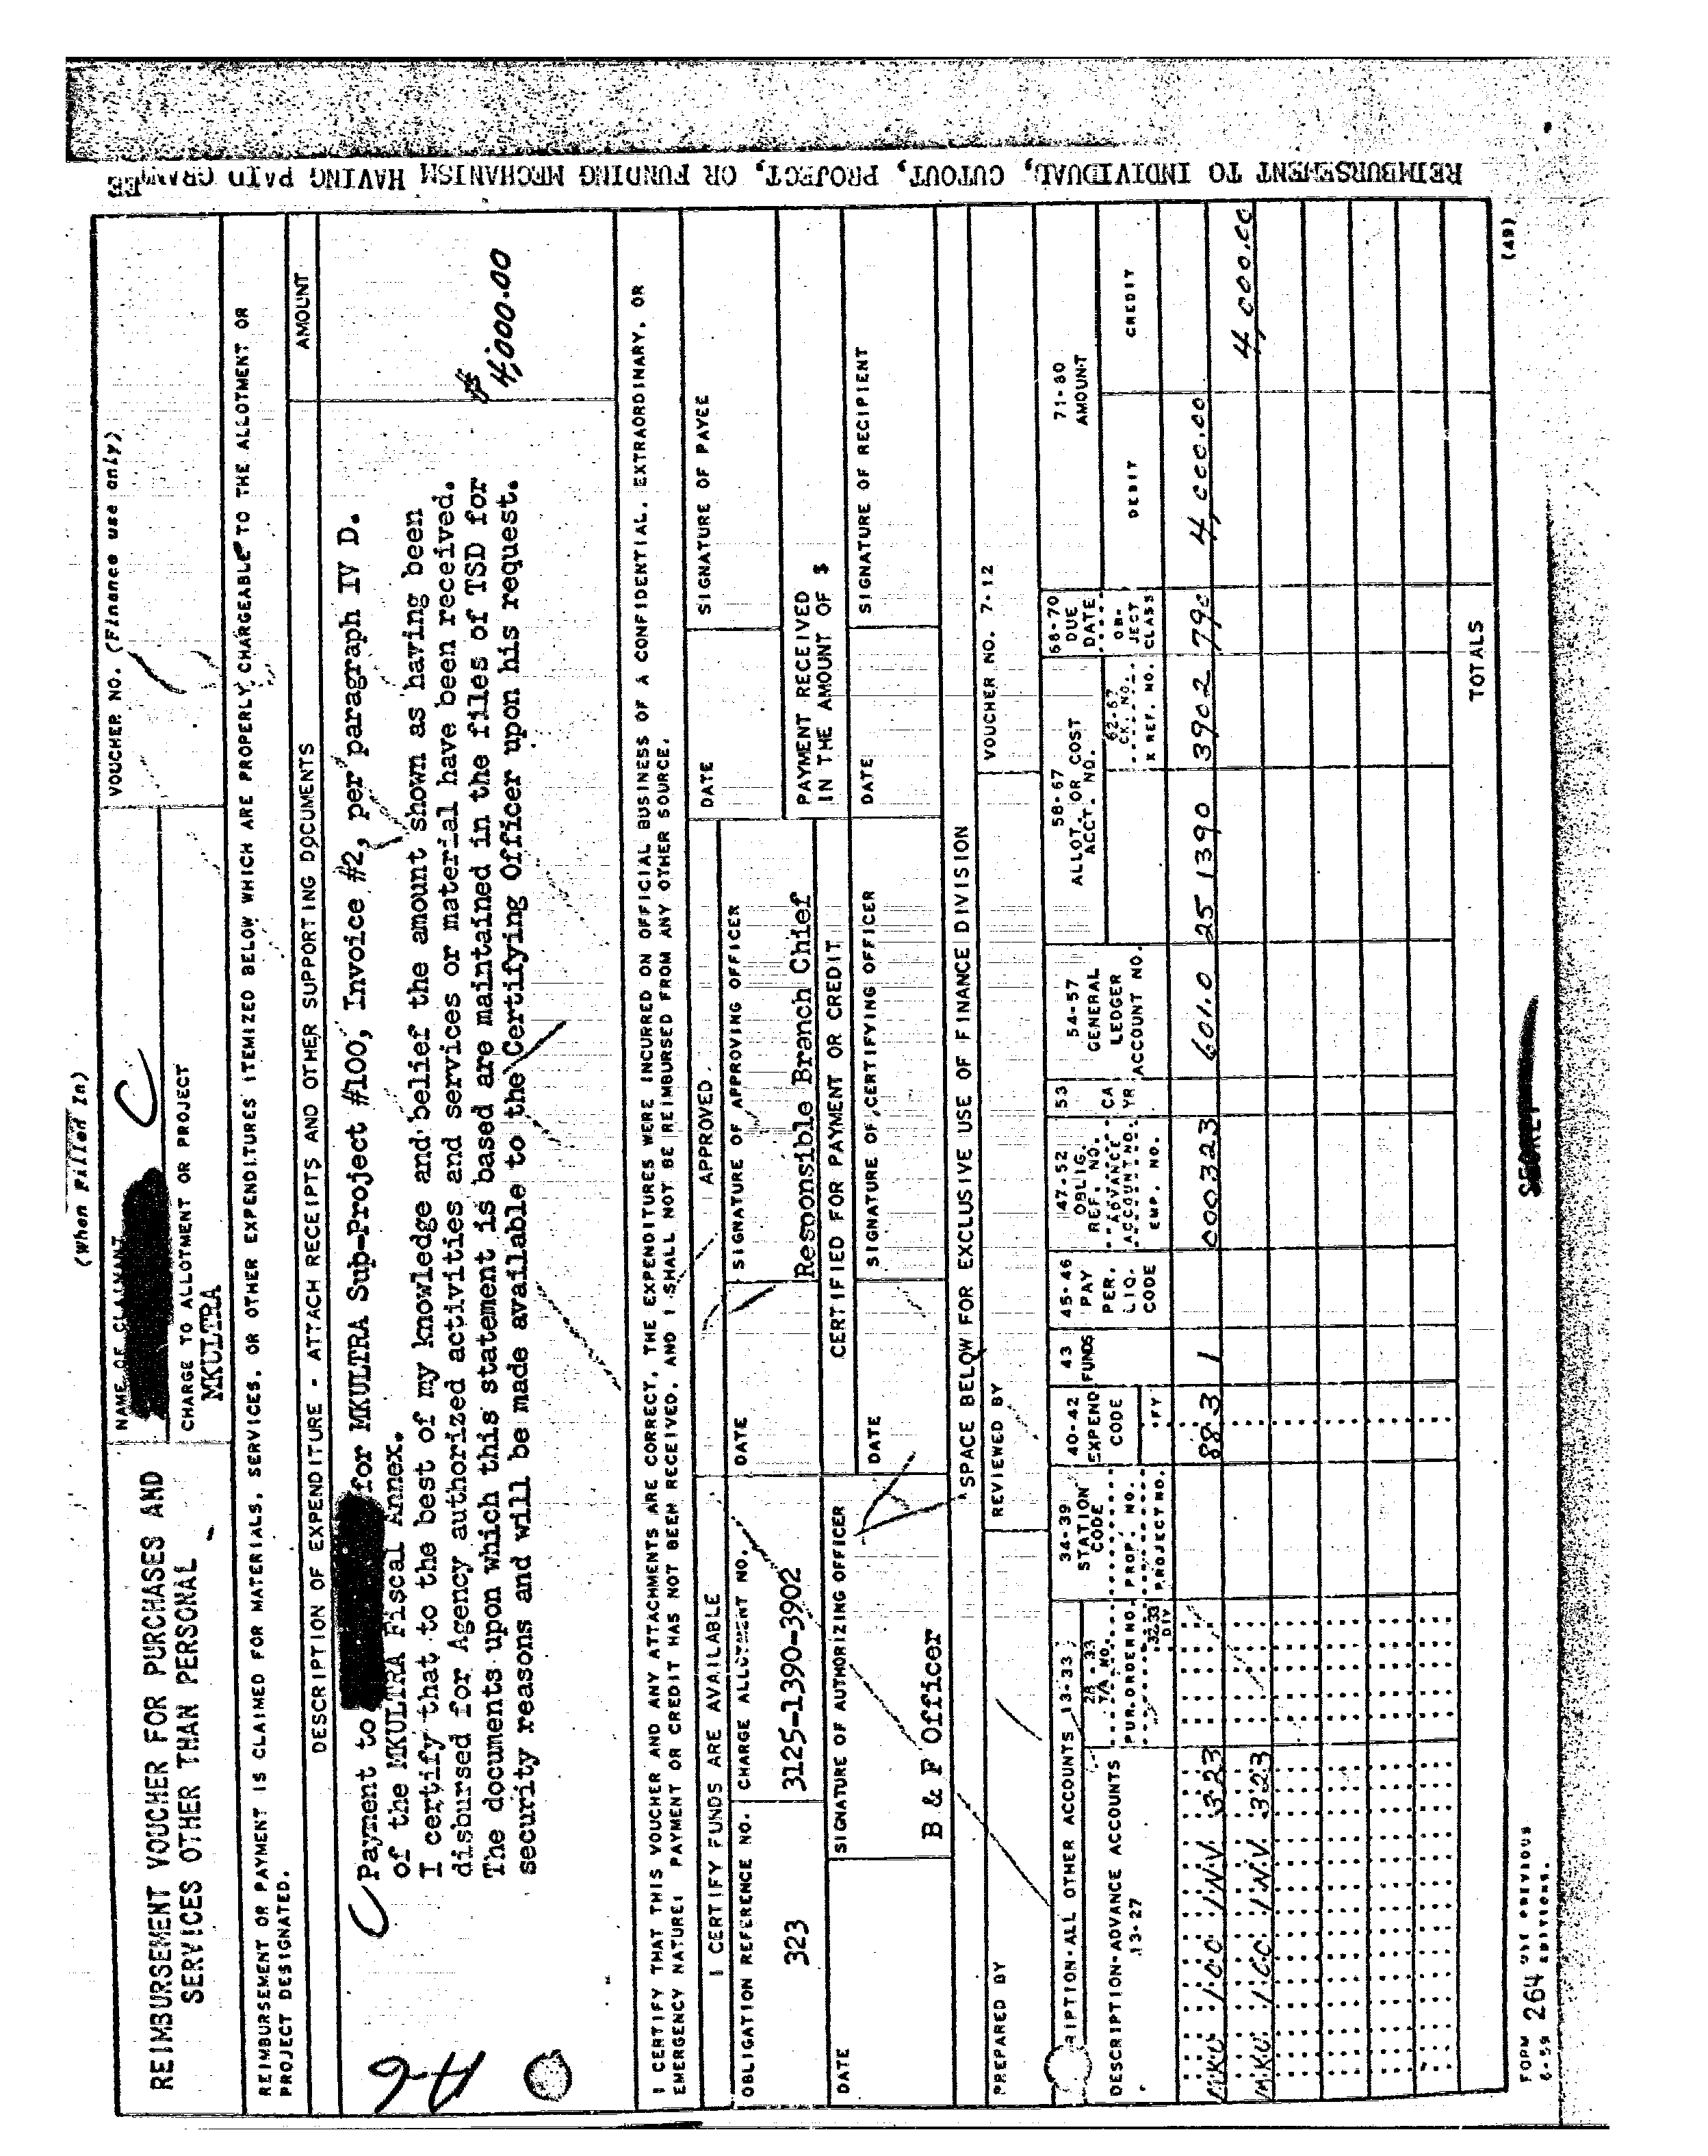 (When Filled In)
REIMBURSEMENT VOUCHER FOR PURCHASES AND SERVICES OTHER THAN PERSONAL
NAME OF CLAIMANT
C
VOUCHER NO. (Finance use only)
CHARGE TO ALLOTMENT OR PROJECT
MKULTRA
REIMBURSEMENT OR PAYMENT IS CLAIMED FOR MATERIALS, SERVICES, OR OTHER EXPENDITURES ITEMIZED BELOW WHICH ARE PROPERLY CHARGEABLE TO THE ALLOTMENT OR
PROJECT DESIGNATED.
DESCRIPTION OF EXPENDITURE - ATTACH RECEIPTS AND OTHER SUPPORTING DOCUMENTS
AMOUNT
A-6
C Payment to for MKULTRA Sub-Project #100, Invoice #2, per paragraph IV D.
of the MKULTRA Fiscal Annex.
I certify that to the best of my knowledge and belief the amount shown as having been
disbursed for Agency authorized activities and services or material have been received.
The documents upon which this statement is based are maintained in the files of TSD for
security reasons and will be made available to the Certifying Officer upon his request.
$ 4,000.00
I CERTIFY THAT THIS VOUCHER AND ANY ATTACHMENTS ARE CORRECT, THE EXPENDITURES WERE INCURRED ON OFFICIAL BUSINESS OF A CONFIDENTIAL, EXTRAORDINARY, OR
EMERGENCY NATURE: PAYMENT OR CREDIT HAS NOT BEEN RECEIVED, AND I SHALL NOT BE REIMBURSED FROM ANY OTHER SOURCE.
I CERTIFY FUNDS ARE AVAILABLE
APPROVED
DATE
SIGNATURE OF PAYEE
OBLIGATION REFERENCE NO.
CHARGE ALLOTMENT NO.
DATE
SIGNATURE OF APPROVING OFFICER
323
3125-1390-3902
Responsible Branch Chief
PAYMENT RECEIVED
IN THE AMOUNT OF $
CERTIFIED FOR PAYMENT OR CREDIT
DATE
SIGNATURE OF AUTHORIZING OFFICER
DATE
SIGNATURE OF CERTIFYING OFFICER
DATE
SIGNATURE OF RECIPIENT
B & F Officer
SPACE BELOW FOR EXCLUSIVE USE OF FINANCE DIVISION
PREPARED BY
REVIEWED BY
VOUCHER NO. 7-12
RIPTION-ALL OTHER ACCOUNTS 13-33
DESCRIPTION-ADVANCE ACCOUNTS
13-27
28-33
T/A NO.
PUR.ORDER NO.
32-33
DIV
34-39
STATION
CODE
PROP. NO.
PROJECT NO.
40-42
EXPEND
CODE
FY
43
FUNDS
45-46
PAY
PER.
LIQ.
CODE
47-52
OBLIG.
REF. NO.
ADVANCE
ACCOUNT NO.
EMP. NO.
53
CA
YR.
54-57
GENERAL
LEDGER
ACCOUNT NO.
58-67
ALLOT. OR COST
ACCT. NO.
62-67
CK. NO.
X REF. NO.
68-70
DUE
DATE
OB-
JECT
CLASS
71-80
AMOUNT
DEBIT
CREDIT
MKU 100 INV 323 883 1 000323 601.0 25 1390 3902 790 4,000.00
MKU 100 INV 323 4,000.00
TOTALS
FORM 264 USE PREVIOUS
6-59 EDITIONS.
SECRET
(49)
REIMBURSEMENT TO INDIVIDUAL, CUTOUT, PROJECT, OR FUNDING MECHANISM HAVING PAID GRANTEE